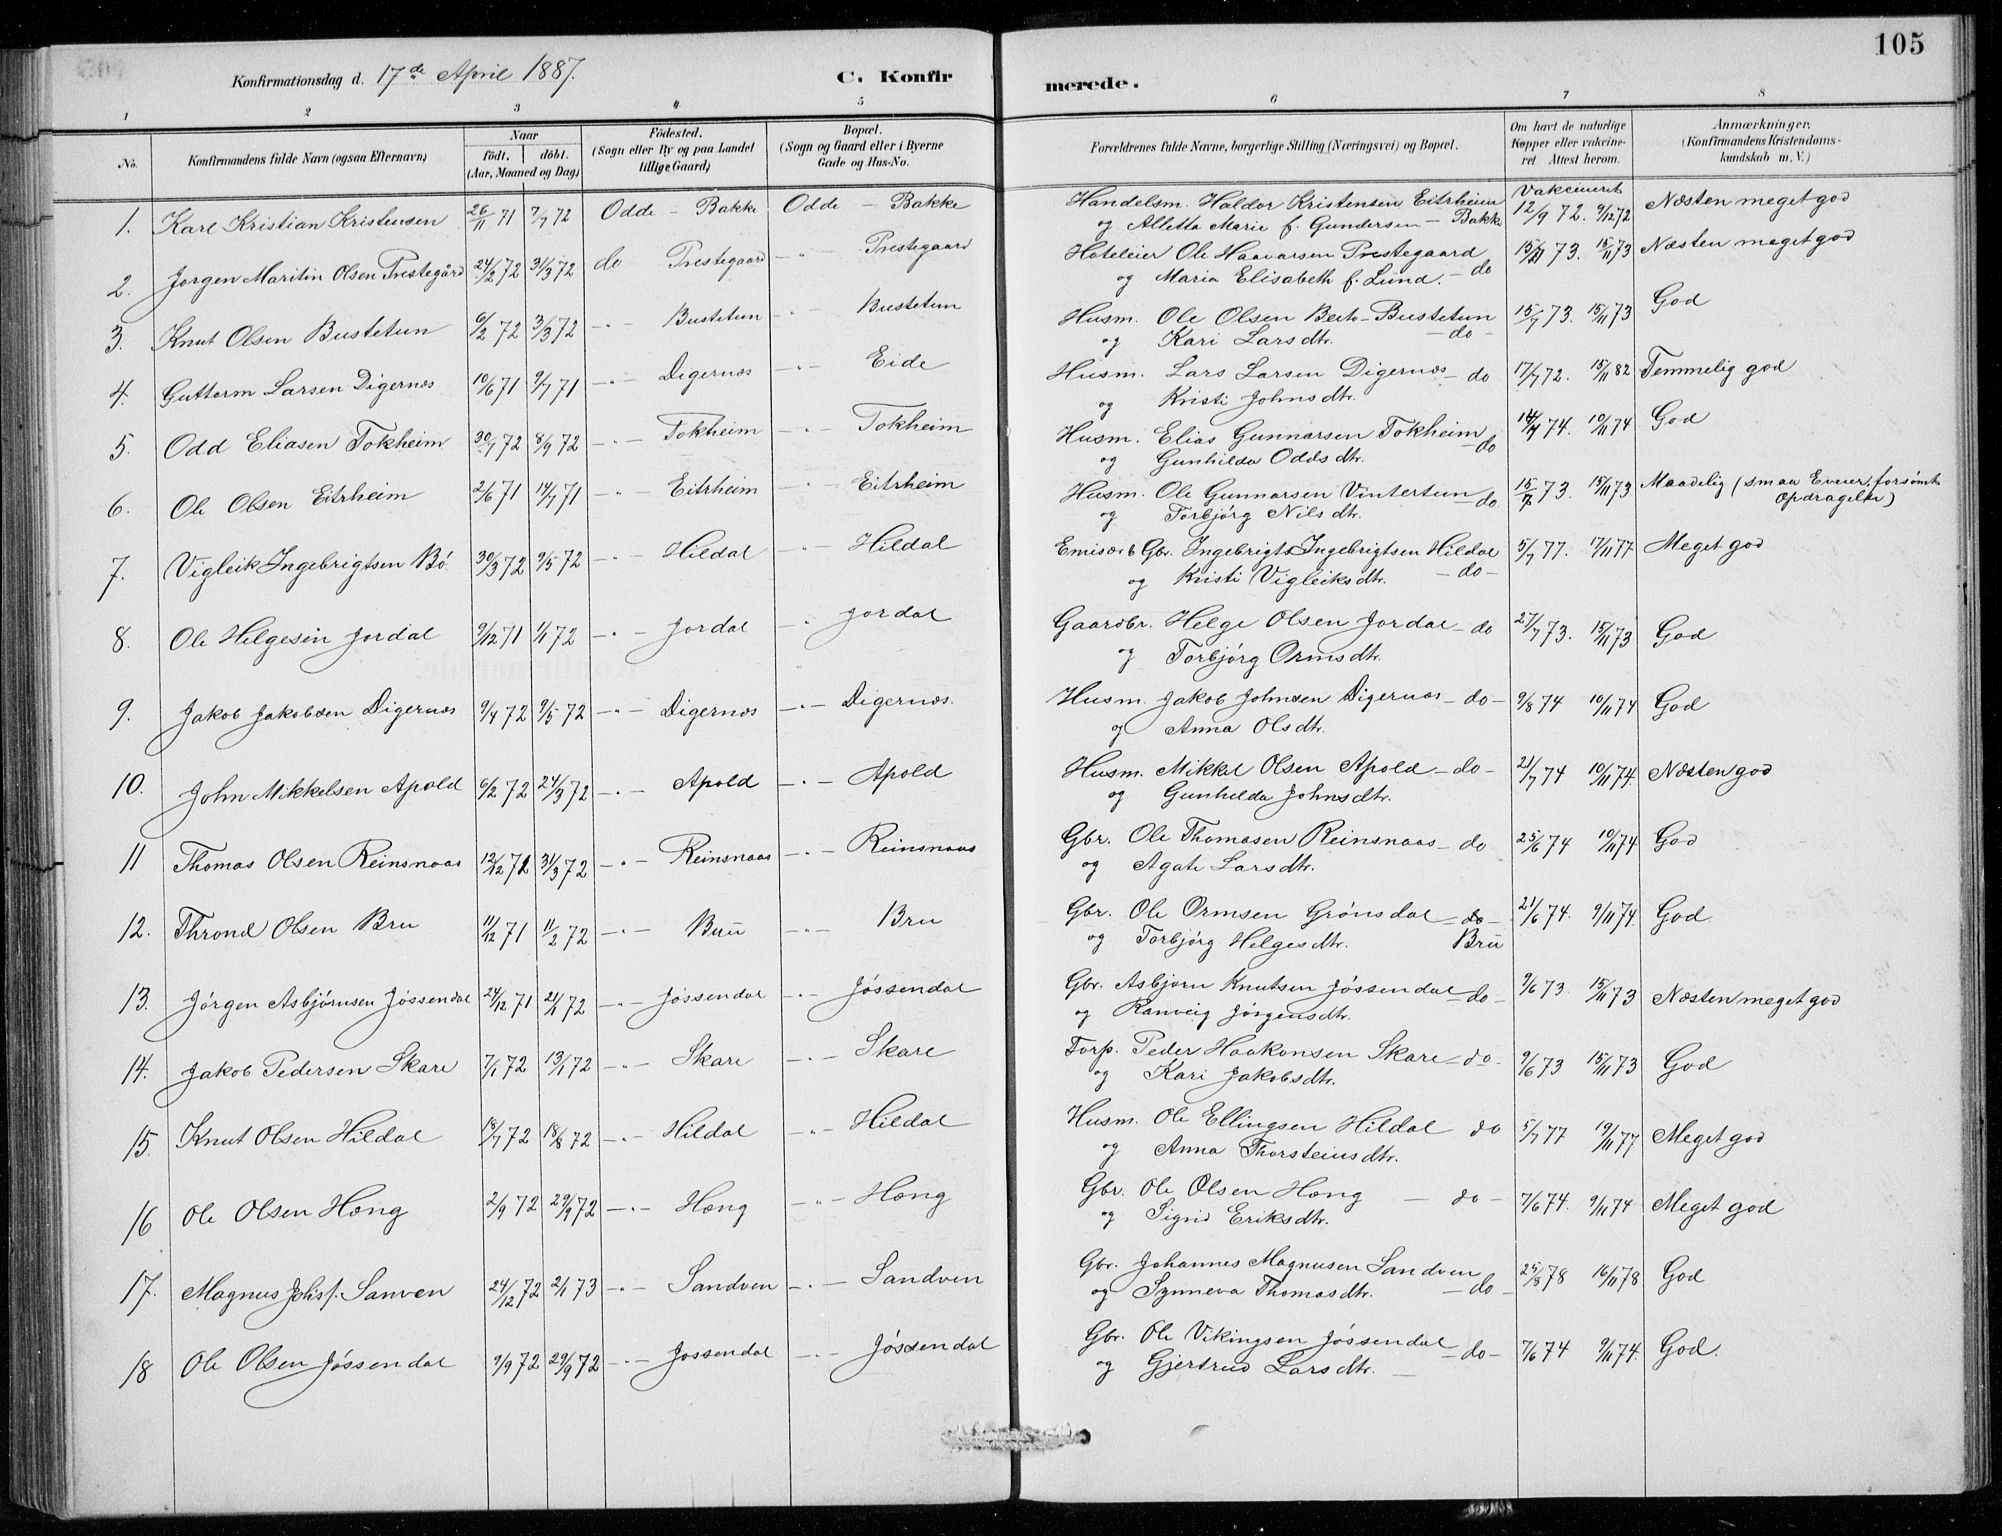 105
Konfirmationsdag d. 17de April 1887.
C. Konfir
merede.
1 2 3 4 5 6 7 8
No. Konfirmandens fulde Navn (ogsaa Efternavn) Naar født. døbt. (Aar, Maaned og Dag) Fødested. (Sogn eller By og paa Landet tillige Gaard) Bopæl. (Sogn og Gaard eller i Byerne Gade og Hus-No. Forældrenes fulde Navne, borgerlige Stilling (Næringsvei) og Bopæl. Om havt de naturlige Kopper eller vakcineret Attest herom. Anmærkninger. (Konfirmandens Kristendomskundskab m. V.)
1. Karl Kristian Kristensen 26/11 71 7/7 72 Odde - Bakke Odde - Bakke Handelsm. Haldor Kristensen Eitrheim Vakcineret 12/9 72. 9/12 72 Næsten meget god
og Alletta Marie f. Gundersen - Bakke
2. Jørgen Maritin Olsen Prestegård 24/2 72 31/3 72 do Prestegaard - " - Prestegaard Hoteleier Ole Haavarsen Prestegaard 73. 15/11 73 Næsten meget god
og Maria Elisabeth f. Lund. - do
3. Knut Olsen Bustetun 6/2 72 3/3 72 - " - Bustetun - " - Bustetun Husm. Ole Olsen Bustetun 15/7 73. 15/11 73 God
og Kari Larsdtr. - do -
4. Guttorm Larsen Digernæs 10/6 71 9/7 71 - " - Digernæs - " - Eide Husm. Lars Larsen Digernæs - do 17/7 72. 15/11 82 Temmelig god
og Kristi Johnsdtr.
5. Odd Eliasen Tokheim 30/7 72 8/9 72 - " - Tokheim - " - Tokheim Husm. Elias Gunnarsen Tokheim do 74. 10/11 74 God
og Gunhilda Oddsdtr.
6. Ole Olsen Eitrheim 2/6 71 14/7 71 - " - Eitrheim - " - Eitrheim Husm. Ole Gunnarsen Vintertun - do 73. 15/11 73 Maadelig (smaa Evner, forsømt Opdragelse)
og Torbjørg Nilsdtr.
7. Vigleik Ingebrigtsen Bø 30/3 72 9/5 72 - " - Hildal - " - Hildal Emisær & Gbr. Ingebrigt Ingebrigtsen Hildal 5/7 77. 17/11 77 Meget god
og Kristi Vigleiksdtr. - do -
8. Ole Helgesen Jordal 9/12 71 1/1 72 - " - Jordal - " - Jordal Gaardbr. Helge Olsen Jordal - do 27/7 73. 15/11 73 God
og Torbjørg Ormsdtr.
9. Jakob Jakobsen Digernæs 9/4 72 9/5 72 - " - Digernæs - " - Digernæs. Husm. Jakob Johnsen Digernæs - do - 9/8 74 10/11 74 God
og Anna Olsdtr.
10. John Mikkelsen Apold 6/2 72 24/3 72 - " - Apold - " - Apold Husm. Mikkel Olsen Apold - do - 21/7 74 10/11 74. Næsten god
og Gunhilda Johnsdtr.
11 Thomas Olsen Reinsnaas 12/12 72 31/3 72 - " - Reinsnaas - " - Reinsnaas Gbr. Ole Thomasen Reinsnaas - do 25/6 74 10/11 74 God
og Agate Larsdtr.
12. Thrond Olsen Bru 11/12 71 11/2 72 - " - Bru - " - Bru Gbr. Ole Ormsen Grønsdal - do - 21/6 74. 9/11 74. God.
og Torbjørg Helgesdtr. Bru
13. Jørgen Asbjørnsen Jøssendal 24/12 71 21/1 72 - " - Jøssendal - " - Jøssendal Gbr. Asbjørn Knutsen Jøssendal - do - 9/6 73. 15/11 73 Næsten meget god
og Ranveig Jørgensdtr.
14. Jakob Pedersen Skare 7/1 72 13/1 72 - " - Skare - " - Skare Forp. Peder Haakonsen Skare - do - 9/6 73 15/11 73 God
og Kari Jakobsdtr.
15. Knut Olsen Hildal 18/7 72 18/8 72 - " - Hildal - " - Hildal Husm. Ole Ellingsen Hildal do 5/7 77 19/11 77 Meget god
og Anna Thorsteinsdtr.
16 Ole Olsen Høng 2/9 72 29/9 72 - " - Høng - " - Høng Gbr. Ole Olsen Høng - do - 7/6 74. 9/11 74 Meget god
og Sigrid Eriksdtr.
17. Magnus Johs. Sanven 24/12 72 2/1 73 - " - Sandven - " - Sandven Gbr. Johannes Magnusen Sandven 25/8 78 16/11 78 God
og Synneva Thomasdtr. - do -
18 Ole Olsen Jøssendal 9/9 72 29/9 72 - " - Jøssendal - " - Jøssendal Gbr. Ole Vikingsen Jøssendal - do - 7/6 74 9/11 74. God.
og Gjertrud Larsdtr.